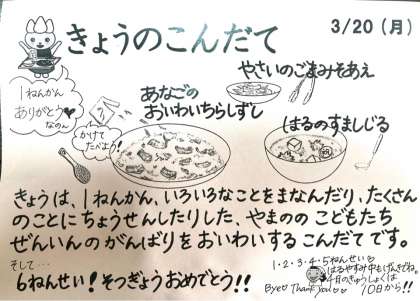 きょうのこんだて
3/20(月)
やさいのごまみそあえ
1ねんかん
ありがとう♥
なのん
あなごの
おいわいちらしずし
かけて
たべよう!
はるのすましじる
きょうは、1ねんかん、いろいろなことをまなんだり、たくさん
のことにちょうせんしたりした、やまのの こどもたち
ぜんいんのがんばりを おいわいする こんだて です。
そして…
6ねんせい!そつぎょうおめでとう!!
1・2・3・4・5ねんせい♡
はるやすみ中もげんきでね。
4月のきゅうしょくは
10日から!!
Bye♡ Thank you♡